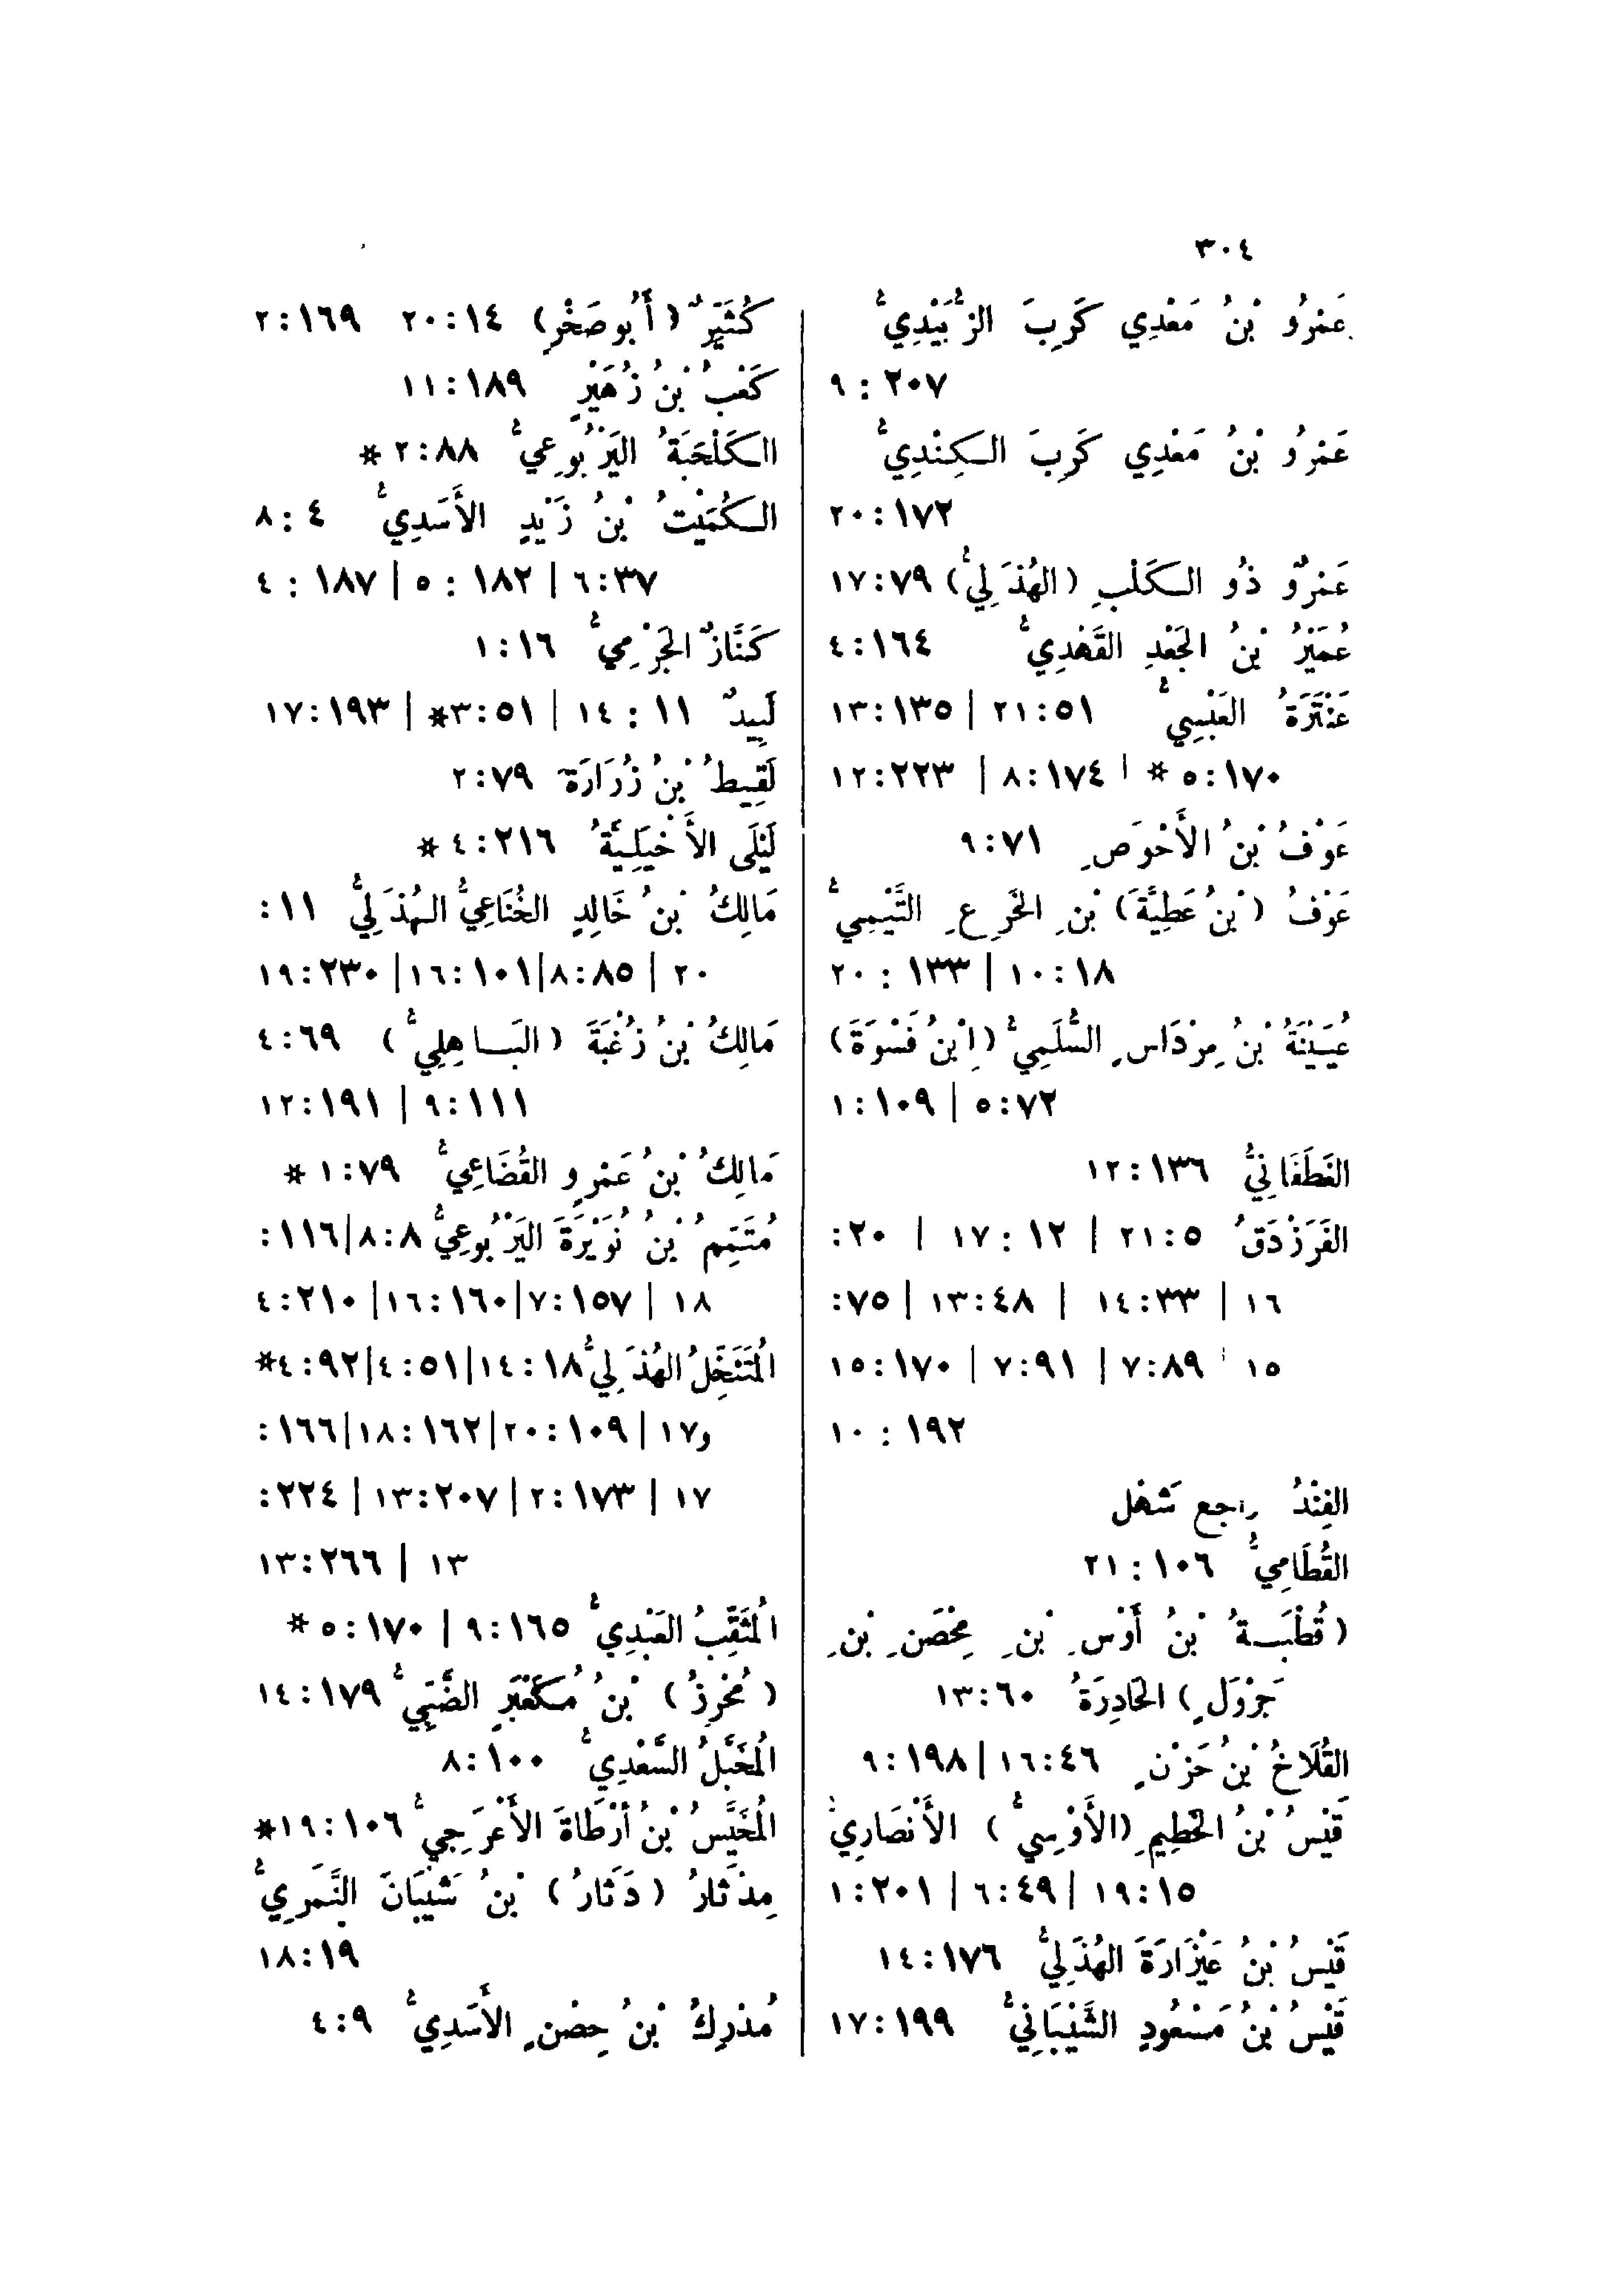 ٣٠٤
عَمْرُو بْنُ مَعْدِي كَرِبَ الزُّبَيْدِيُّ
٢٠٧ : ٩
عَمْرُو بْنُ مَعْدِي كَرِبَ الكِنْدِيُّ
١٧٢:٢٠
عَمْرٌو ذُو الكَلْبِ (الهُذَلِيُّ) ٧٩:١٧
عُمَيْرُ بْنُ الجَعْدِ القَهْدِيُّ ١٦٤:٤
عَنْتَرَةُ العَبْسِيُّ ٥١:٢١ | ١٣٥:١٣
١٧٠:٥ * | ١٧٤:٨ | ٢٢٣:١٢
عَوْفُ بْنُ الأَحْوَصِ ٧١:٩
عَوْفُ (بْنُ عَطِيَّةَ) بْنِ الخَرِعِ التَّيْمِيُّ
١٨:١٠ | ١٣٣ : ٢٠
عُيَيْنَةُ بْنُ مِرْدَاسٍ السُّلَمِيُّ (اِبْنُ فَسْوَةَ)
٧٢:٥ | ١٠٩:١
الغَطَفَانِيُّ ١٣٦:١٢
الفَرَزْدَقُ ٥:٢١ | ١٢ : ١٧ | ٢٠:
١٦ | ٣٣:١٤ | ٤٨:١٣ | ٧٥:
١٥ | ٨٩:٧ | ٩١:٧ | ١٧٠:١٥
١٩٢ : ١٠
الفِنْدُ راجع شَهْل
القُطَامِيُّ ١٠٦:٢١
(قُطْبَةُ بْنُ أَوْسِ بْنِ مِحْصَنِ بْنِ
جَرْوَلٍ) الحَادِرَةُ ٦٠:١٣
القُلَاخُ بْنُ حَزْنٍ ٤٦:١٦ | ١٩٨:٩
قَيْسُ بْنُ الخَطِيمِ (الأَوْسِيُّ) الأَنْصَارِيُّ
١٥:١٩ | ٤٩:٦ | ٢٠١:١
قَيْسُ بْنُ عَيْزَارَةَ الهُذَلِيُّ ١٧٦:١٤
قَيْسُ بْنُ مَسْعُودٍ الشَّيْبَانِيُّ ١٩٩:١٧
كُثَيِّرٌ (أَبُو صَخْرٍ) ١٤:٢٠ ١٦٩:٢
كَعْبُ بْنُ زُهَيْرٍ ١٨٩:١١
الكَلْحَبَةُ اليَرْبُوعِيُّ ٨٨:٢ *
الكُمَيْتُ بْنُ زَيْدٍ الأَسَدِيُّ ٤ :٨
٣٧:٦ | ١٨٢ : ٥ | ١٨٧ : ٤
كَنَّازٌ الجَرْمِيُّ ١٦:١
لَبِيدٌ ١١ : ١٤ | ٥١:٣* | ١٩٣:١٧
لَقِيطُ بْنُ زُرَارَةَ ٧٩:٢
لَيْلَى الأَخْيَلِيَّةُ ٢١٦:٤ *
مَالِكُ بْنُ خَالِدٍ الخُنَاعِيُّ الهُذَلِيُّ ١١:
٢٠ | ٨٥:٨ | ١٠١:١٦ | ٢٣٠:١٩
مَالِكُ بْنُ زُغْبَةَ (البَاهِلِيُّ) ٦٩:٤
١١١:٩ | ١٩١:١٢
مَالِكُ بْنُ عَمْرٍو القُضَاعِيُّ ٧٩:١ *
مُتَمِّمُ بْنُ نُوَيْرَةَ اليَرْبُوعِيُّ ٨:٨ | ١١٦:
١٨ | ١٥٧:٧ | ١٦٠:١٦ | ٢١٠:٤
المُتَنَخِّلُ الهُذَلِيُّ ١٨:١٤ | ٥١:٤ | ٩٢:٤*
و١٧ | ١٠٩:٢٠ | ١٦٢:١٨ | ١٦٦:
١٧ | ١٧٣:٢ | ٢٠٧:١٣ | ٢٢٤:
١٣ | ٢٦٦:١٣
المُثَقِّبُ العَبْدِيُّ ١٦٥:٩ | ١٧٠:٥ *
(مُحْرِزُ) بْنُ مُكَعْبَرٍ الضَّبِّيُّ ١٧٩:١٤
المُخَبَّلُ السَّعْدِيُّ ١٠٠:٨
المُخَيَّسُ بْنُ أَرْطَاةَ الأَعْرَجِيُّ ١٠٦:١٩*
مِدْثَارُ (دَثَارُ) بْنُ شَيْبَانَ النَّمَرِيُّ
١٩:١٨
مُدْرِكُ بْنُ حِصْنٍ الأَسَدِيُّ ٩:٤